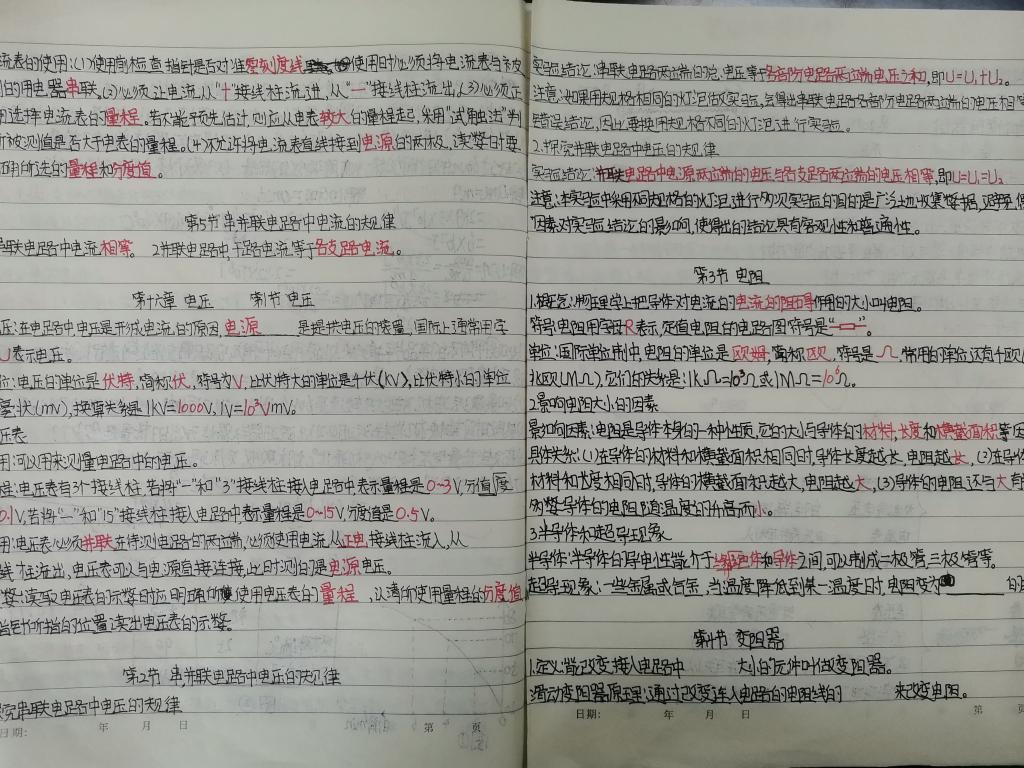 流表的使用:(1)使用前检查指针是否对准零刻度线 使用时必须将电流表与被
的用电器串联,(2)必须让电流从"+"接线柱流进,从"-"接线柱流出,(3)必须正
用选择电流表的量程。若不能预先估计,则应从电表较大的量程起,采用"试触法"判
被测值是否大于电表的量程。(4)不允许将电流表直线接到电源的两极。读数时要
明所选的量程和分度值。
第5节 串并联电路中电流的规律
串联电路中电流相等。 2并联电路中,干路电流等于各支路电流。
第十六章 电压 第1节 电压
压:在电路中电压是形成电流的原因,电源 是提供电压的装置,国际上通常用字
U表示电压。
位:电压的单位是伏特,简称伏,符号为V,比伏特大的单位是千伏(KV),比伏特小的单位
毫伏(mV),换算关系是1KV=1000V,1V=10³VmV。
压表
用:可以用来测量电路中的电压。
程:电压表有3个接线柱,若将"-"和"3"接线柱接入电路中,表示量程是0~3V,分值度
0.1V,若将"-"和"15"接线柱接入电路中,表示量程是0~15V,分度值是0.5V。
用:电压表必须并联在待测电路的两端,必须使电流从正电接线柱流入,从
线柱流出,电压表可以与电源直接连接,此时测的是电源电压。
数:读取电压表的示数时应明确所使用电压表的量程,认清所使用量程的分度值
指针所指的位置读出电压表的示数
第2节 串并联电路中电压的规律
探究串联电路中电压的规律
日期: 年 月 日 第 页
实验结论:串联电路两端的总电压等于各部分电路两端电压之和,即U=U₁+U₂。
注意:如果用规格相同的灯泡做实验,会得出串联电路各部分电路两端的电压相等
错误结论,因此要换用规格不同的灯泡进行实验。
2.探究并联电路中电压的规律
实验结论:并联电路中电源两端的电压与各支路两端的电压相等,即U=U₁=U₂
注意:本实验中采用不同规格的灯泡,进行多次实验的目的是广泛地收集数据,避免偶
因素对实验结论的影响,使得出的结论具有客观性和普遍性。
第3节 电阻
1.概念:物理学上把导体对电流的电流的阻碍作用的大小叫电阻。
符号:电阻用字母R表示,定值电阻的电路图符号是" "。
单位:国际单位制中,电阻的单位是欧姆,简称欧,符号是Ω,常用的单位还有千欧(
兆欧(MΩ),它们的关系是:1KΩ=10³Ω或1MΩ=10⁶Ω。
2.影响电阻大小的因素
影响因素:电阻是导体本身的一种性质,它的大小与导体的材料,长度和横截面积等因
具体关系:(1)在导体的材料和横截面积相同时,导体长度越长,电阻越长,(2)在导体
材料和长度相同时,导体的横截面积越大,电阻越大,(3)导体的电阻还与大有
多数导体的电阻随温度的升高而小。
3.半导体和超导现象
半导体:半导体的导电性能介于绝缘体和导体之间,可以制成二极管,三极管等。
超导现象:一些金属或合金,当温度降低到某一温度时,电阻变为 的
第4节 变阻器
1.定义:能改变接入电路中 大小的元件叫做变阻器。
滑动变阻器原理:通过改变连入电路的电阻线的 来改变电阻。
日期: 年 月 日 第 页